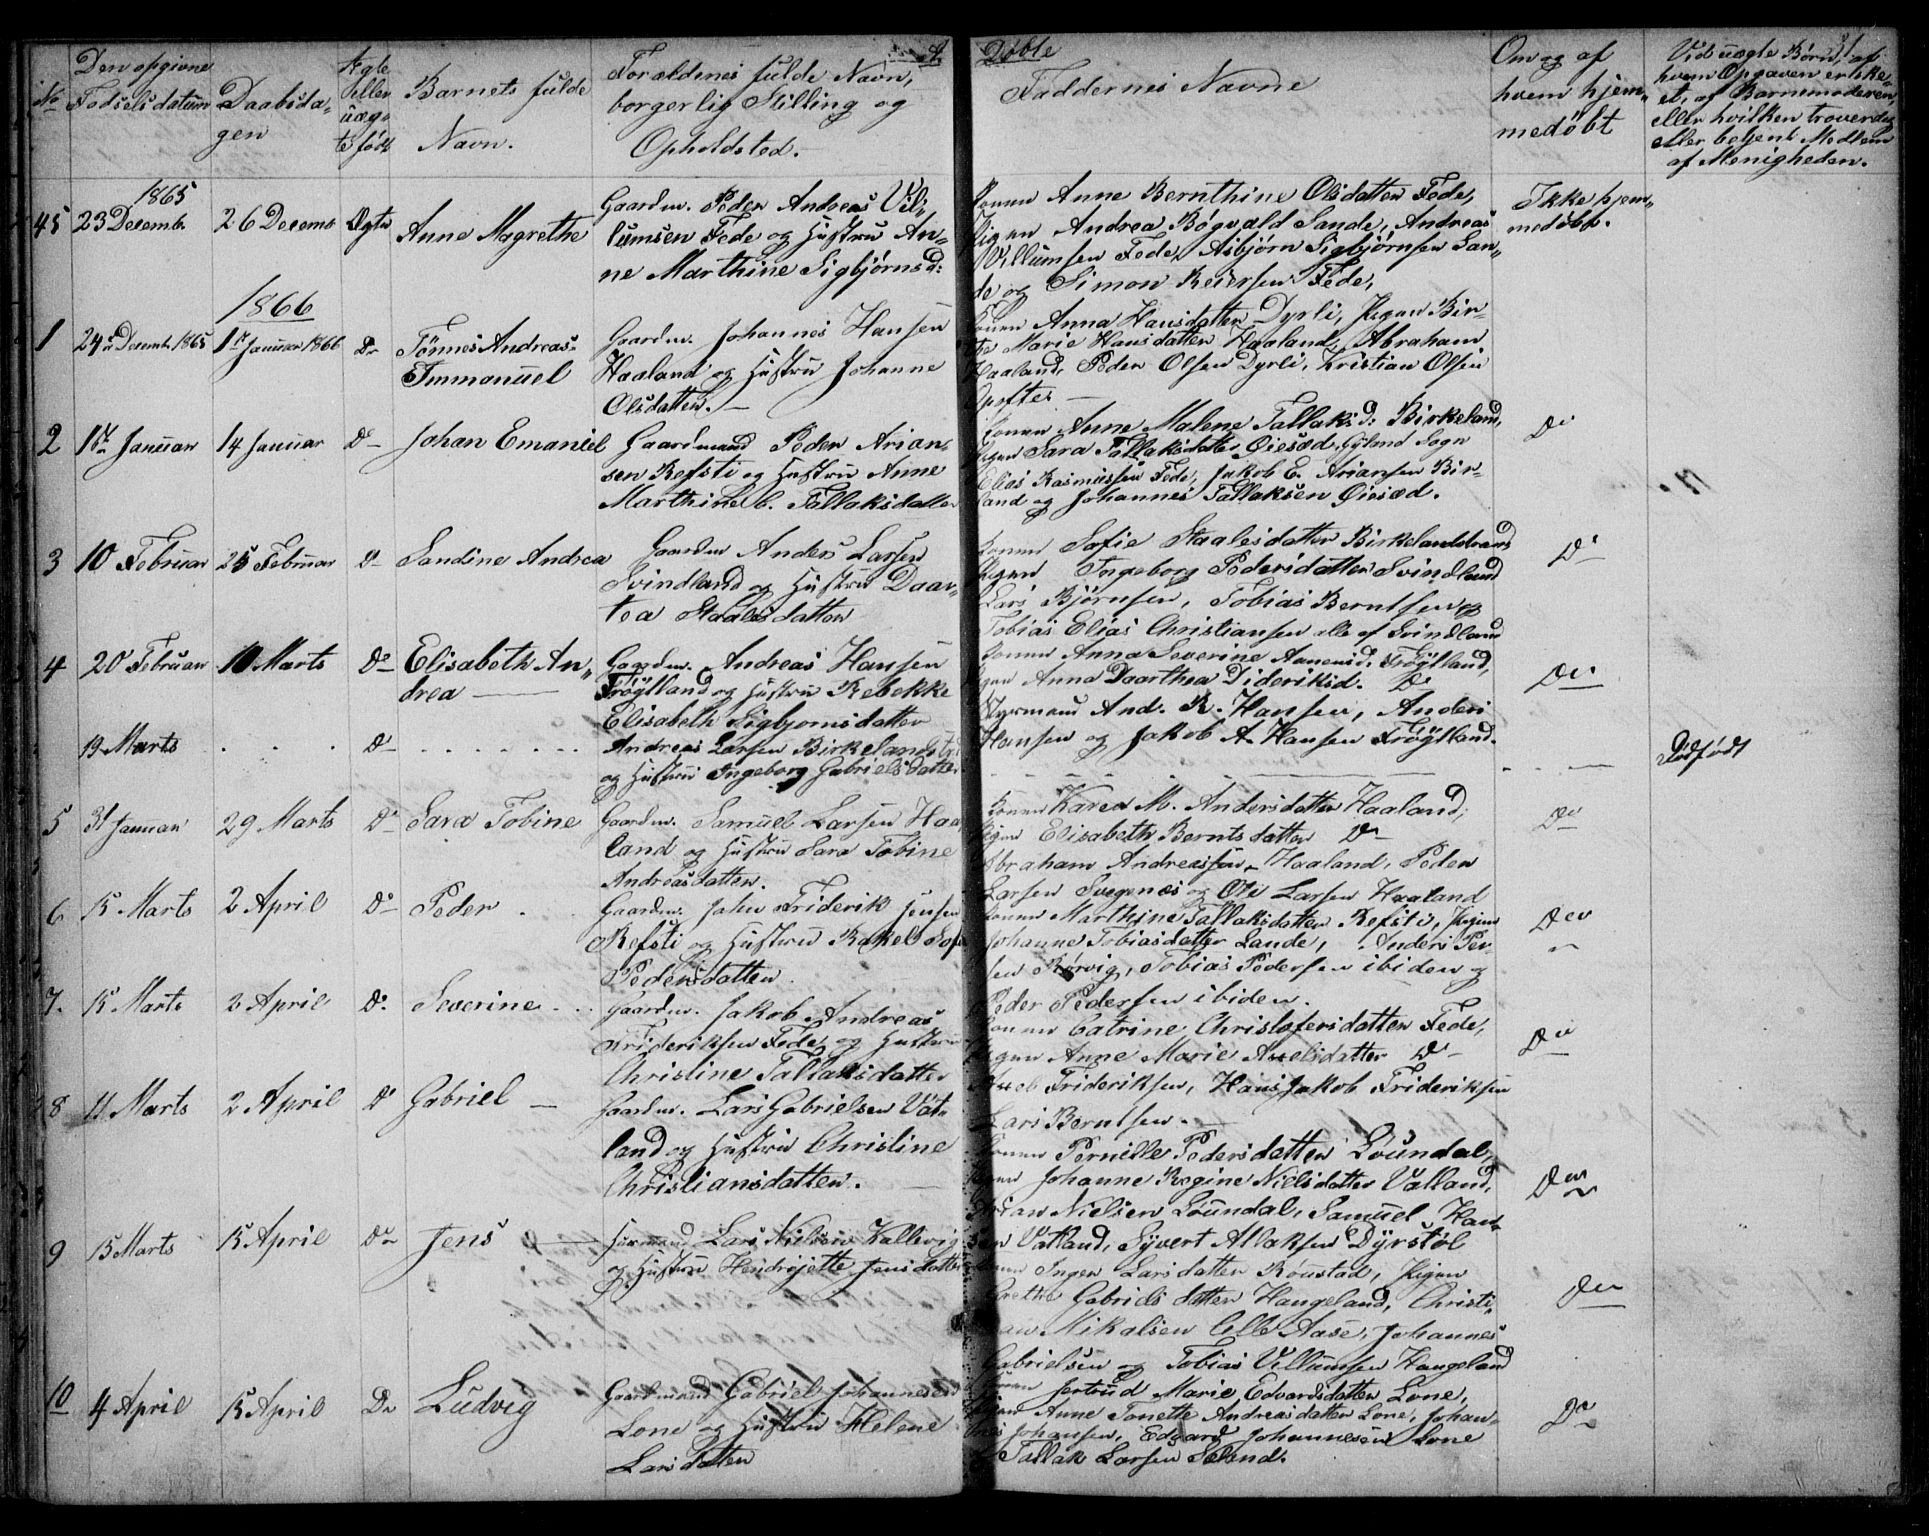 Døbte
No
Den opgivne
Fødselsdatum
Daabsda-
gen
Ægte
eller
uæg-
te født
Barnets fulde
Navn.
Forældrenes fulde Navn,
borgerlig Stilling og
Opholdsted.
Faddernes Navne
Om og af
hvem hjem-
medøbt
Ved uægte Børn, af
hvem Opgaven er ske-
et, af Barnemoderen,
eller hvilken troværdig
eller betjent Medlem
af Menigheden.
1865
45 23 Decemb. 26 Decemb Ægte Anne Magrethe
Gaardm. Peder Andreas Vil-
lumsen Fede og Hustru An-
ne Marthine Sigbjørnsd:
Konen Anne Bernthine Olsdatter Fede,
Pigen Andrea Bøgvald Sande, Andreas
Villumsen Fede, Asbjørn Sigbjørnsen San-
de og Simon Reiersen Fede,
Ikke hjem-
medøbt.
1866
1 24 Decemb. 1865 1 Januar 1866 Do Tönnes Andreas
Emmanuel
Gaardm. Johannes Hansen
Haaland og Hustru Johanne
Olsdatter.
Konen Anna Hansdatter Dyrli, Pigen Bir-
the Marie Hansdatter Haaland, Abraham
Haaland, Peder Olsen Dyrli, Kristian Olsen
2 1 Januar 14 Januar Do Johan Emaniel
Gaardmand Peder Arian-
sen Refsti og Hustru Anne
Marthine C. Tallaksdatter
Konen Anne Malene Tallaksd: Birkeland,
Pigen Sara Tallaksdatter Øiesæd, Gyland Sogn
Elias Rasmussen Fede, Jakob E. Ariansen Bir-
land og Johannes Tallaksen Øiesæd.
Do
3 10 Februar 25 Februar Do Sandine Andrea
Gaardm Anders Larsen
Svindland og Hustru Daar-
tea Staalesdatter
Konen Sofie Staalesdatter Birkelandstrand
Pigen Ingeborg Pedersdatter Svindland
Lars Bjørnsen, Tobias Berntsen og
Tobias Elias Christiansen alle af Svindland
Do
4 20 Februar 10 Marts Do Elisabeth An-
drea
Gaardm. Andreas Hansen
Frøytland og Hustru Rebekke
Elisabeth Sigbjørnsdatter
Konen Anna Severine Aanensd. Frøytland,
Pigen Anna Daarthea Dideriksd. Do
Styrmand And. R. Hansen, Anders
Hansen og Jakob A. Hansen Frøytland.
Do
19 Marts Do
Andreas Larsen Birkelandstr.
og Hustru Ingeborg Gabrielsdatter
Dødfødt
5 31 Januar 29 Marts Do Sara Tobine
Gaardm. Samuel Larsen Haa
land og Hustru Sara Tobine
Andreasdatter.
Konen Karen M. Andersdatter Haaland,
Pigen Elisabeth Berntsdatter Do
Abraham Andreassen Haaland, Peder
Larsen Svegenæs og Ole Larsen Haaland
Do
6 15 Marts 2 April Do Peder
Gaardm. John Friderik Jensen
Refsti og Hustru Rakel Sofi
Pedersdatter
Konen Marthine Tallaksdatter Refsti, Pigen
Johanne Tobiasdatter Sande, Anders Per-
sen Rørvig, Tobias Pedersen ibiden og
Peder Pedersen ibiden.
Do
7. 15 Marts 2 April Do Severine
Gaardm. Jakob Andreas
Frideriksen Fede og Hustru
Christine Tallaksdatter
Konen Catrine Christofersdatter Fede,
Pigen Anne Marie Axelsdatter Do
Axel Frideriksen, Hans Jakob Frideriksen
Lars Berntsen.
Do
8 11 Marts 2 April Do Gabriel
Gaardm. Lars Gabrielsen Vat-
land og Hustru Christine
Christiansdatter.
Konen Pernille Pedersdatter Loundal,
Pigen Johanne Regine Nielsdatter Vatland,
Arian Nielsen Loundal, Samuel Han-
sen Vatland, Syvert Atlaksen Dyrstøl
Do
9 15 Marts 15 April Do Jens
Huusmand Lars Nielsen Kallevig
og Hustru Hendrijette Jensdatter
Konen Inger Larsdatter Roustad, Pigen
Gabrielsdatter Haugeland, Christi-
an Mikalsen Lille Aase, Johannes
Gabrielsen og Tobias Villumsen Haugeland
Do
10 4 April 15 April Do Ludvig
Gaardmand Gabriel Johannesen
Lone og Hustru Helene
Larsdatter
Konen Jertrud Marie Edvardsdatter Lone,
Pigen Anne Tonette Andreasdatter Lone, Johan-
nes Johansen, Edvard Johannesen Lone
Tallak Larsen Seland.
Do